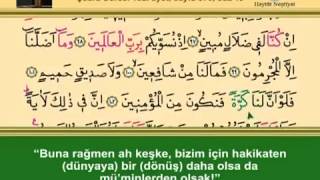 Hayrât Neşriyat
اِنْ كُنَّا لَفِي ضَلَالٍ مُبِينٍ ﴿٩٧﴾ اِذْ نُسَوِّيكُمْ بِرَبِّ الْعَالَمِينَ ﴿٩٨﴾ وَمَٓا اَضَلَّنَٓا
اِلَّا الْمُجْرِمُونَ ﴿٩٩﴾ فَمَا لَنَا مِنْ شَافِعِينَ ﴿١٠٠﴾ وَلَا صَدِيقٍ حَمِيمٍ ﴿١٠١﴾
فَلَوْ اَنَّ لَنَا كَرَّةً فَنَكُونَ مِنَ الْمُؤْمِنِينَ ﴿١٠٢﴾ اِنَّ فِي ذٰلِكَ لَاٰيَةً
“Buna rağmen ah keşke, bizim için hakikaten
(dünyaya) bir (dönüş) daha olsa da
mü’minlerden olsak!”